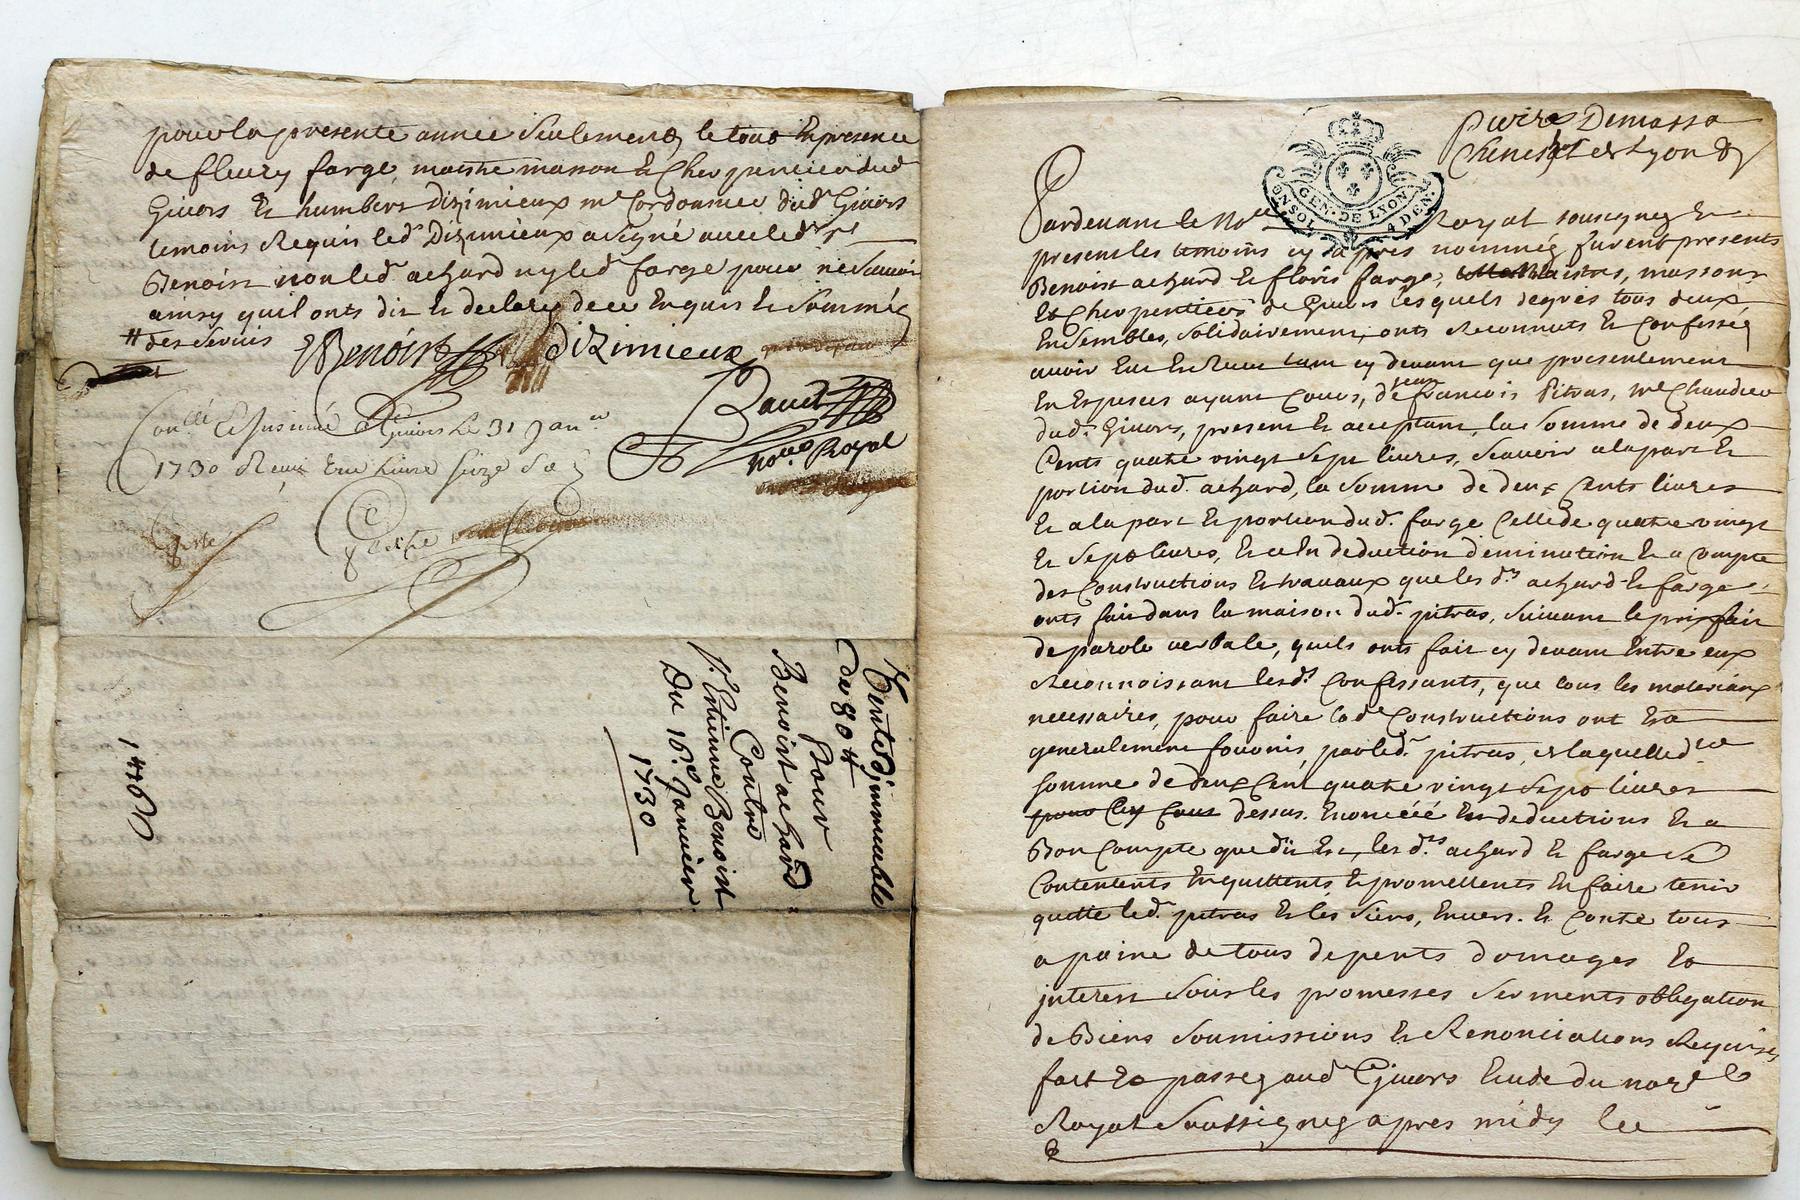 pour la presente année seulement le tout en presence
de fleury farge, maitre masson et Cherpencier dud
Givors et humbert Dizimieux me Cordonnier dud Givors
temoins Requis led Dizimieux a signé avec led sr
Benoist non led achard ny led farge pour ne sçavoir
ainsy quil onts dit et declare de ce Enquis et sommés
# des servis
EBenoist Dizimieux
Bauet
nore Royal
Conllé Et Insinué a Givors Le 31 Janer
1730 Reçu Une Livre seize s
Vente D'immeuble
de 80 tt
Pour
Benoist achard
Contre
sr Estienne Benoist
Du 16e Janvier
1730
GEN. DE LYON
Pardevant le Nore Royal sousigné Et
presents les temoins cy dapres nommés furent presents
Benoist achard Et floris farge, Maistres, massons
Et Cherpentiers de Givors lesquels de grès tous deux
Ensembles, solidairement, onts Reconnuts Et Confessés
avoir Eue Et Receu tant cy devant que presentement
En Especes ayant Cours, de sieur francois Pitras, me Chaudier
dud. Givors, present Et acceptant, la somme de deux
Cents quatre vingt sept livres, sçavoir a la part Et
portion dud. achard, la somme de deux Cents livres
Et a la part Et portion dud. farge Celle de quatre vingt
Et sept livres, Et ce En deduction diminution Et a Compte
des Constructions Et travaux que les ds achard Et farge
onts fait dans la maison dud. pitras, suivant le prix fait
de parole verbale, quils onts fait cy devant Entre eux
Reconnoissant lesds Confessants, que tous les materiaux
necessaires, pour faire lade Constructions ont Esté
generalement fournis, par led. pitras, et laquelle dte
somme de deux Cent quatre vingt sept livres
dessus. Enoncéé En deductions Et a
Bon Compte que dit Est, les ds achard Et farge se
Contentents Enquittents, Et promettents En faire tenir
quitte led. pitras Et les siens, Envers. Et Contre tous
a paine de tous depents domages Et
interest sous les promesses serments obligation
de Biens soumissions Et Renonciations Requises
fait Et passé aud Givors Etude du nore
Royal soussigné apres midy le